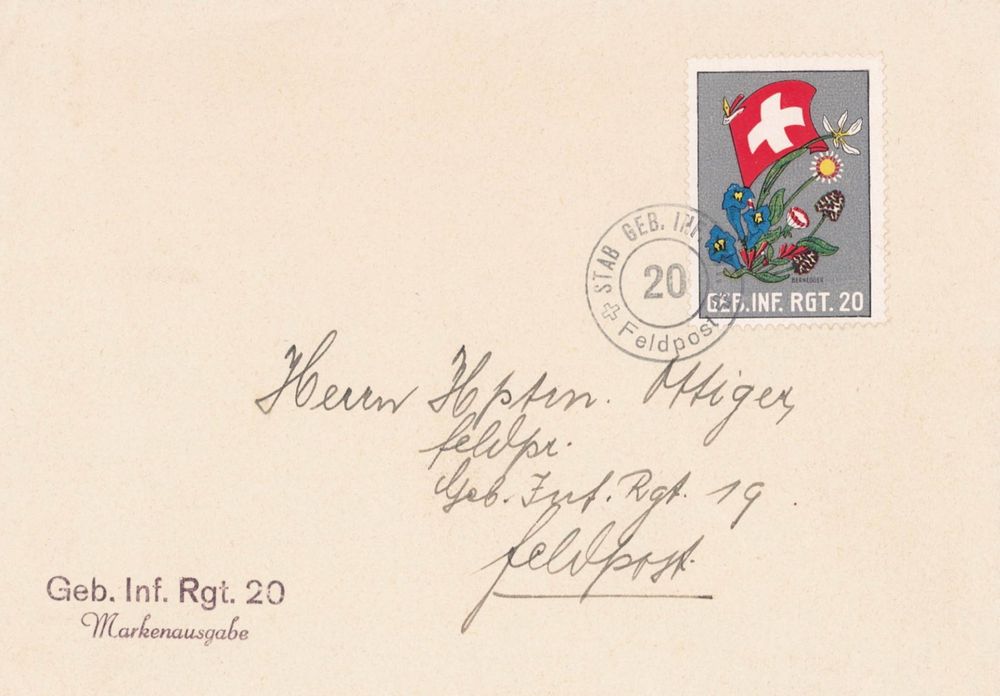 BERNEGGER
GEB. INF. RGT. 20
STAB GEB. INF
20
Feldpost
Herrn Hptm. Ottiger,
Feldpr.
Geb. Inf. Rgt. 19
Feldpost.
Geb. Inf. Rgt. 20
Markenausgabe